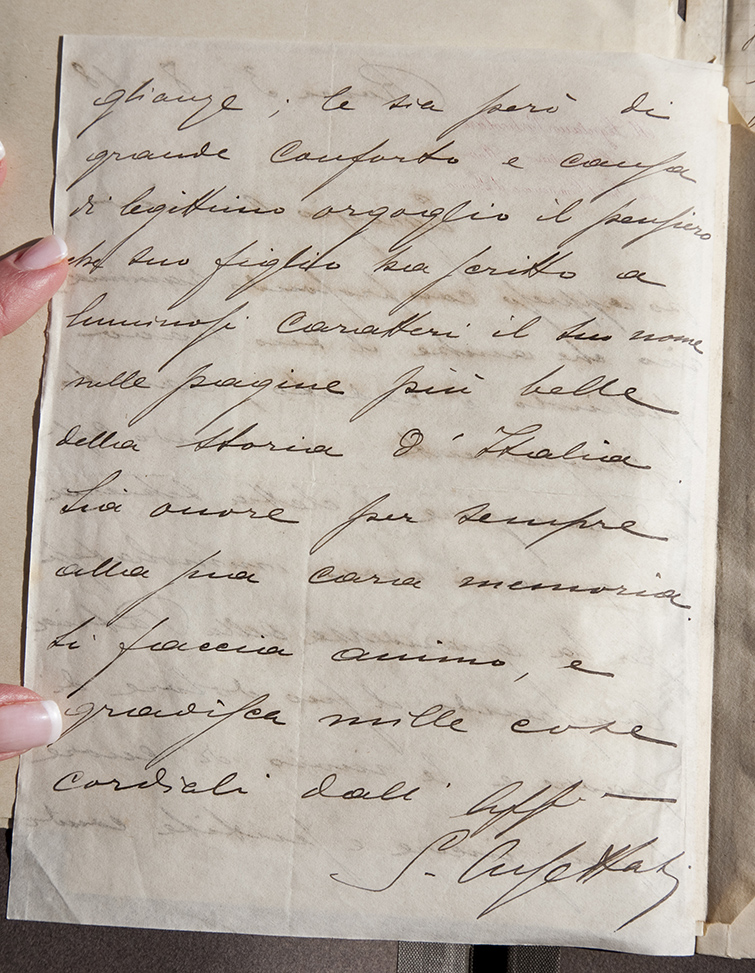 glianze; le sia però di
grande conforto e causa
di legittimo orgoglio il pensiero
che suo figlio ha scritto a
luminosi caratteri il suo nome
nelle pagine più belle
della storia d'Italia.
Sia onore per sempre
alla sua cara memoria.
Si faccia animo, e
gradisca mille cose
cordiali dall' Aff
S.